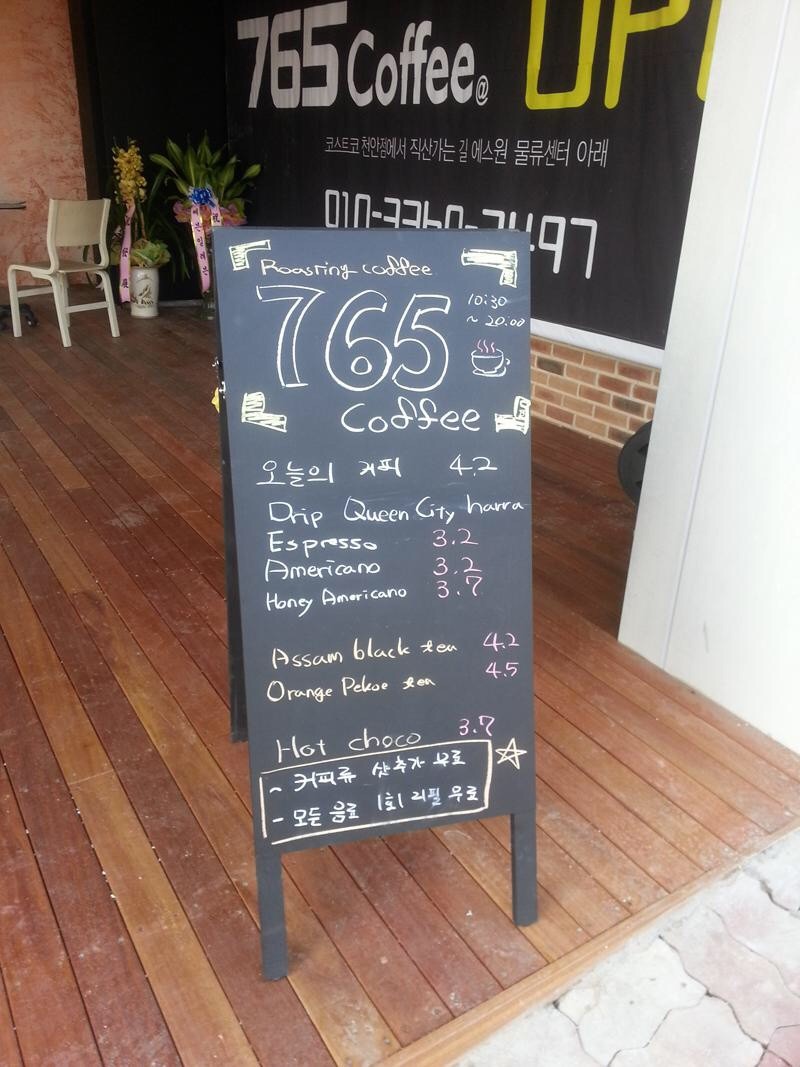 765 Coffee@ OPE
코스트코 천안점에서 직산가는 길 에스원 물류센터 아래
Roasting coffee
10:30
~ 20:00
765
Coffee
오늘의 커피 4.2
Drip Queen City harra
Espresso 3.2
Americano 3.2
Honey Americano 3.7
Assam black tea 4.2
Orange Pekoe tea 4.5
Hot choco 3.7
~ 커피류 샷추가 무료
- 모든 음료 1회 리필 무료